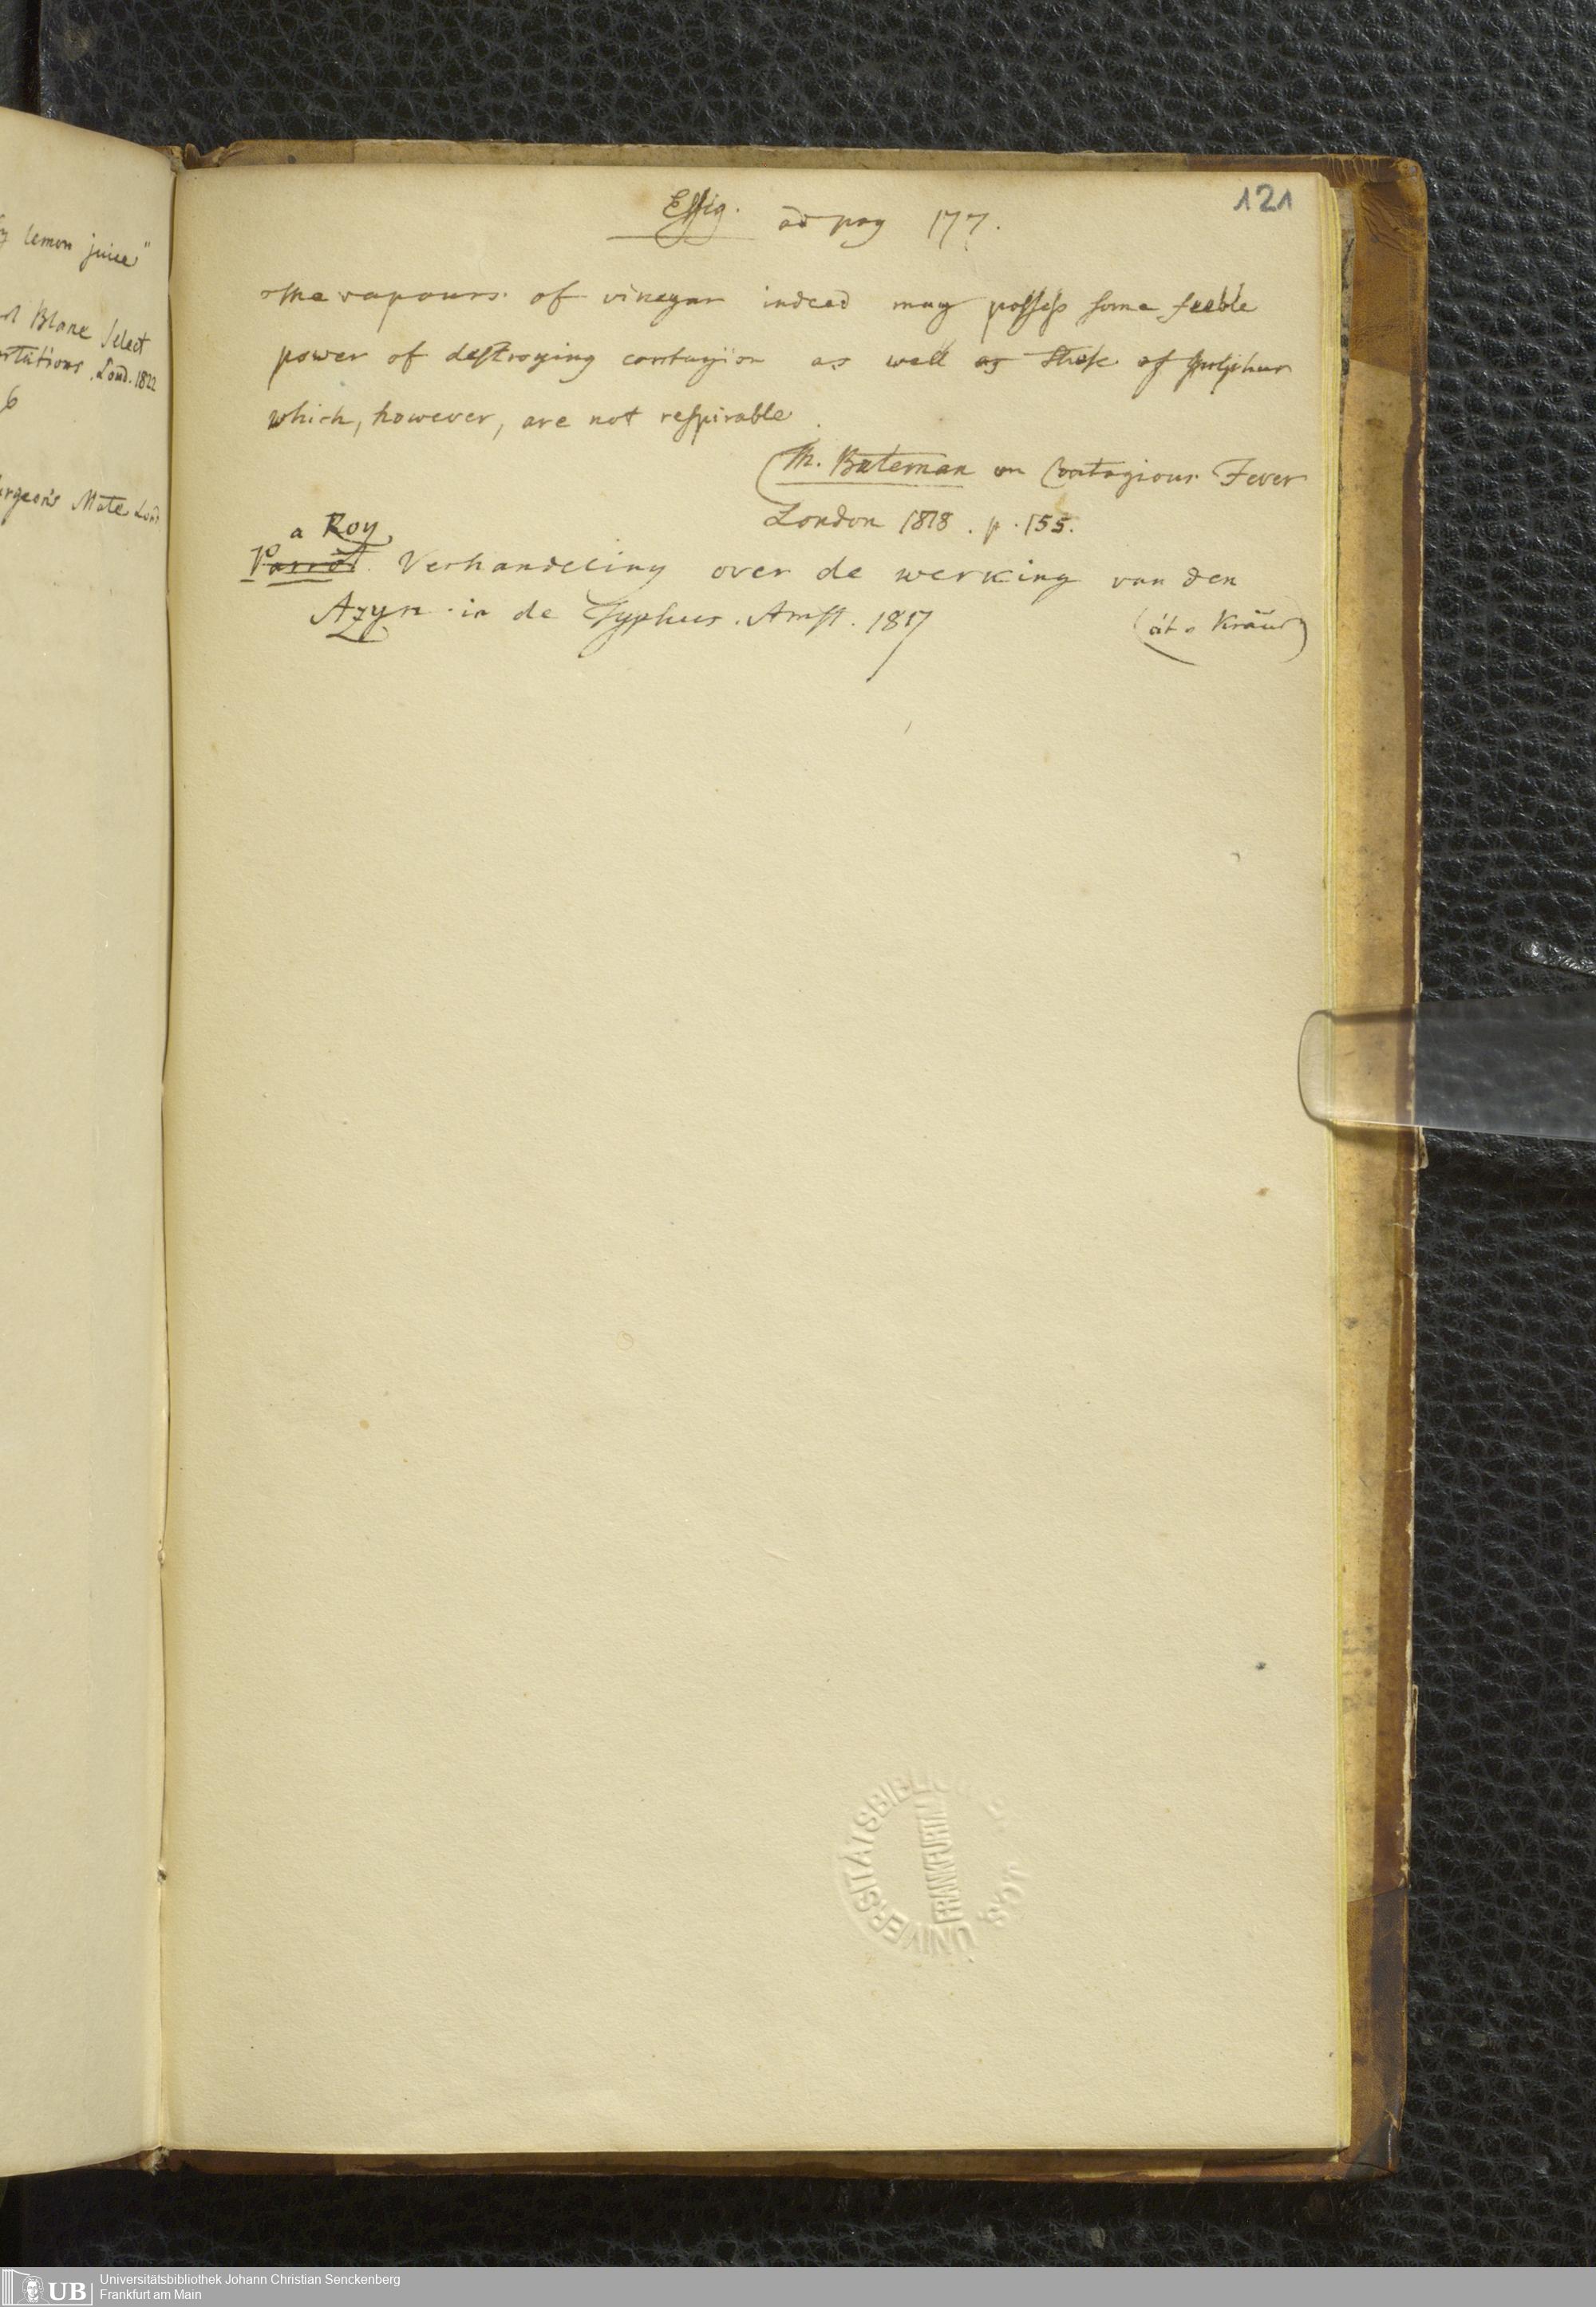 y lemon juice"
Blane Select
Lond. 1822
6
Mate Lond
121
Essig. ad pag 177.
The vapours of vinegar indeed may possess some feeble
power of destroying contagion as well as those of sulphur
which, however, are not respirable.
(Th. Bateman on Contagious Fever
London 1818. p. 155.
a Roy
Parrot. Verhandeling over de werking van den
Azyn in de Typhus. Amst. 1817
UNIVERSITÄTSBIBL
FRANKFURT
Universitätsbibliothek Johann Christian Senckenberg
UB
Frankfurt am Main